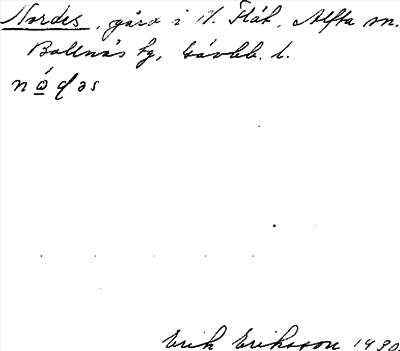 Nordes, gård i N. Flät, Alfta sn.
Bollnäs kg, Gävleb. l.
nó̲dəs
Erik Eriksson 1930.